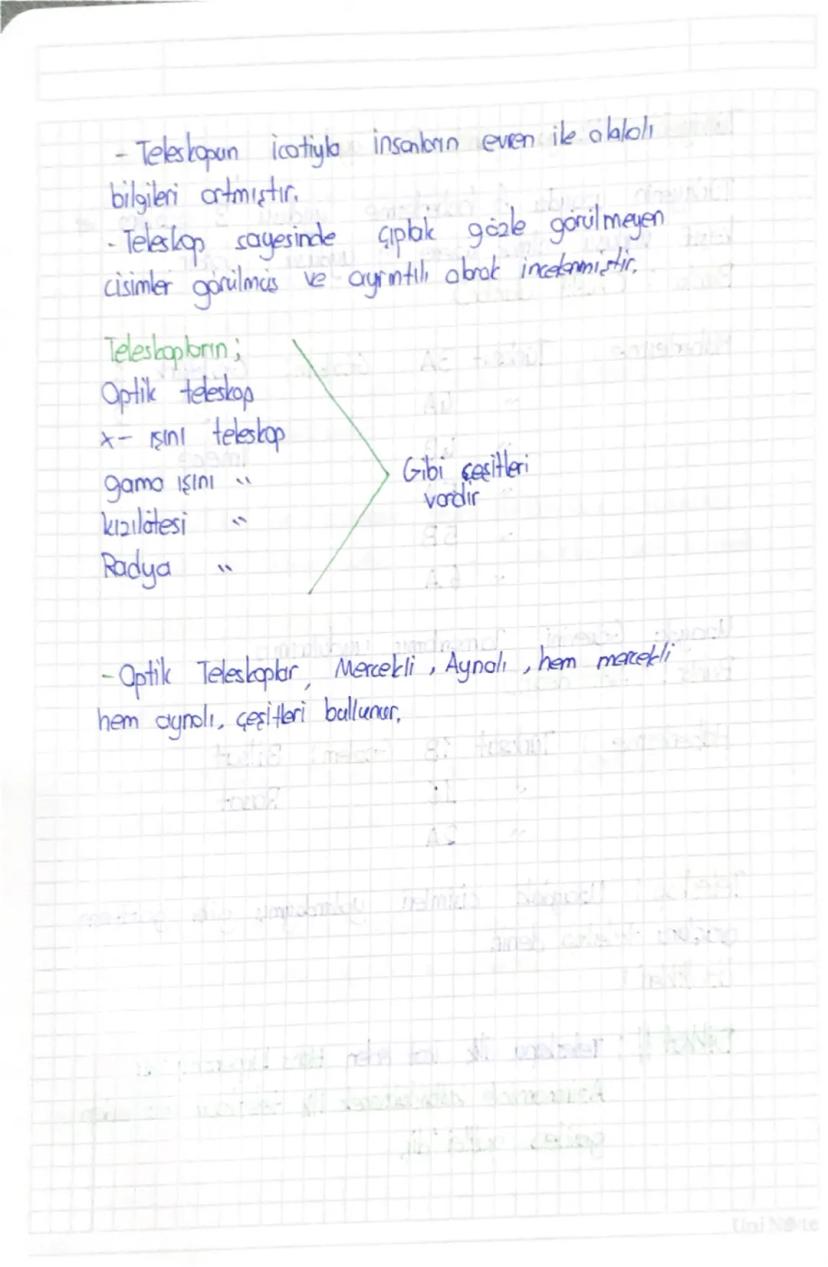 - Teleskopun icatiyla insanların evren ile alakalı
bilgileri artmıştır.
- Teleskop sayesinde çıplak gözle görülmeyen
cisimler görülmüş ve ayrıntılı olarak incelenmiştir.
Teleskopların;
Optik teleskop
x- ışını teleskop
gama ışını "
kızılötesi "
Radya "
Gibi çeşitleri
vardir
- Optik Teleskoplar, Mercekli, Aynalı, hem mercekli
hem aynalı, çeşitleri bullunur.
Uni Note